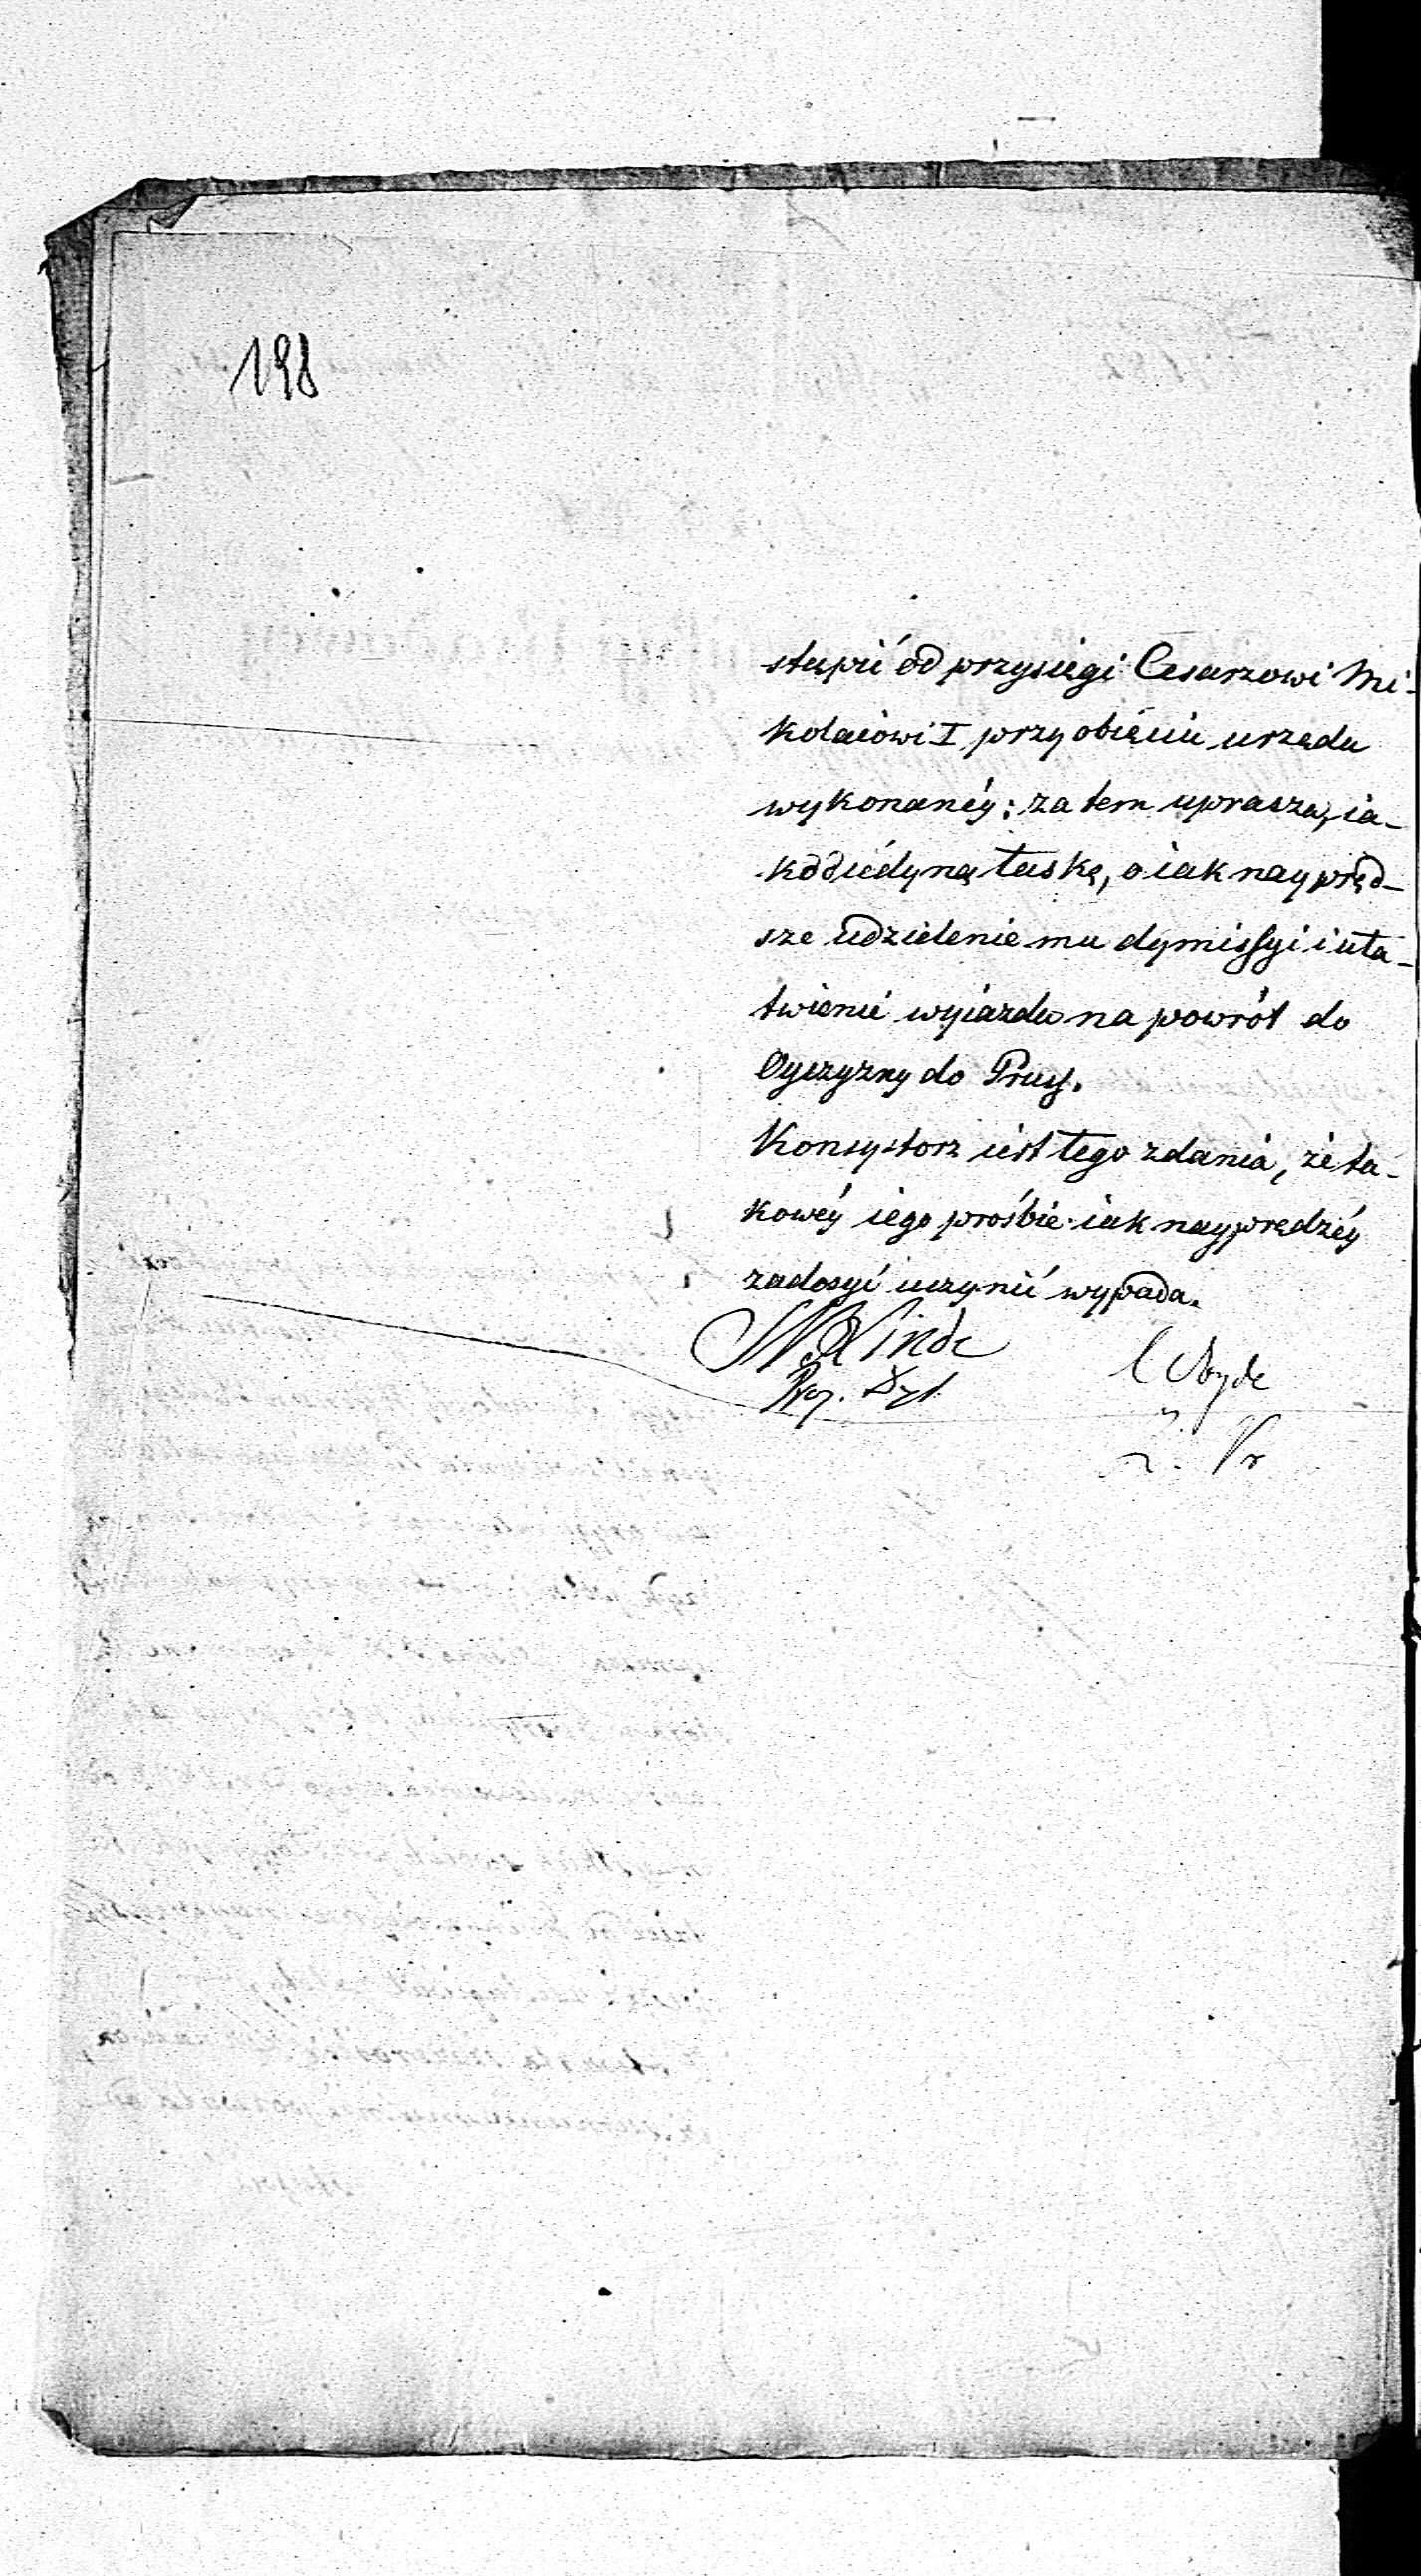 198
stąpić od przysięgi Cesarzowi Mi-
kołaiowi I przy obięciu urzędu
wykonanéy; zatem uprasza, ia-
ko o iedyną łaskę, o iak naypręd-
sze udzielenie mu dymissyi i uła-
twienie wyiazdu na powrót do
Oyczyzny do Pruss.
Konsystorz iest tego zdania, że ta-
kowéy iego prośbie iak nayprędzéy
zadosyć uczynić wypada.
Linde